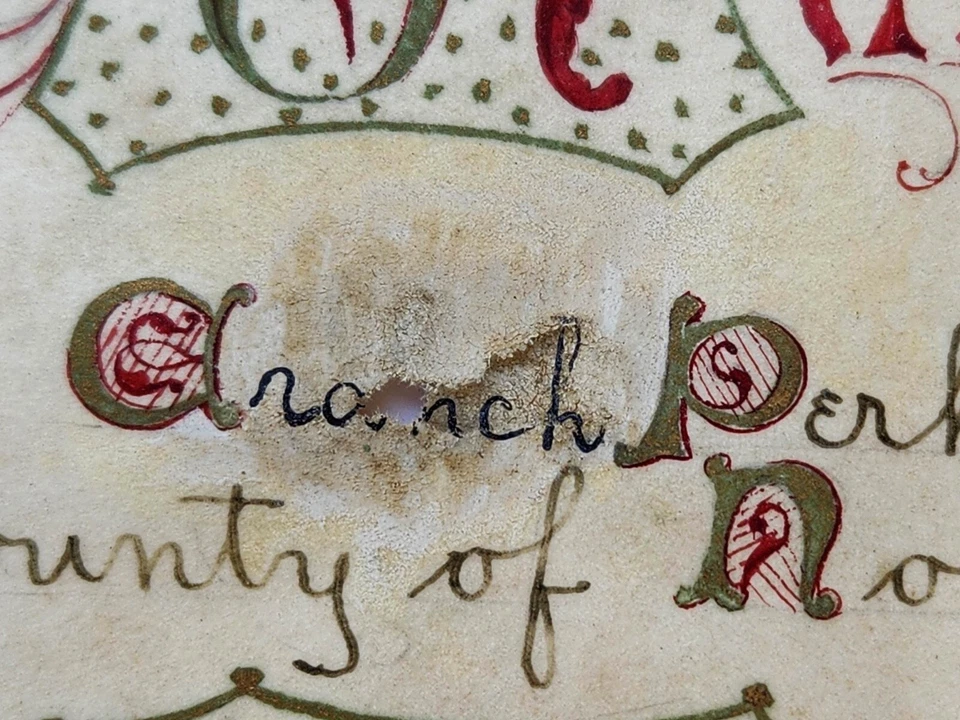 Cranch Perh
ounty of No